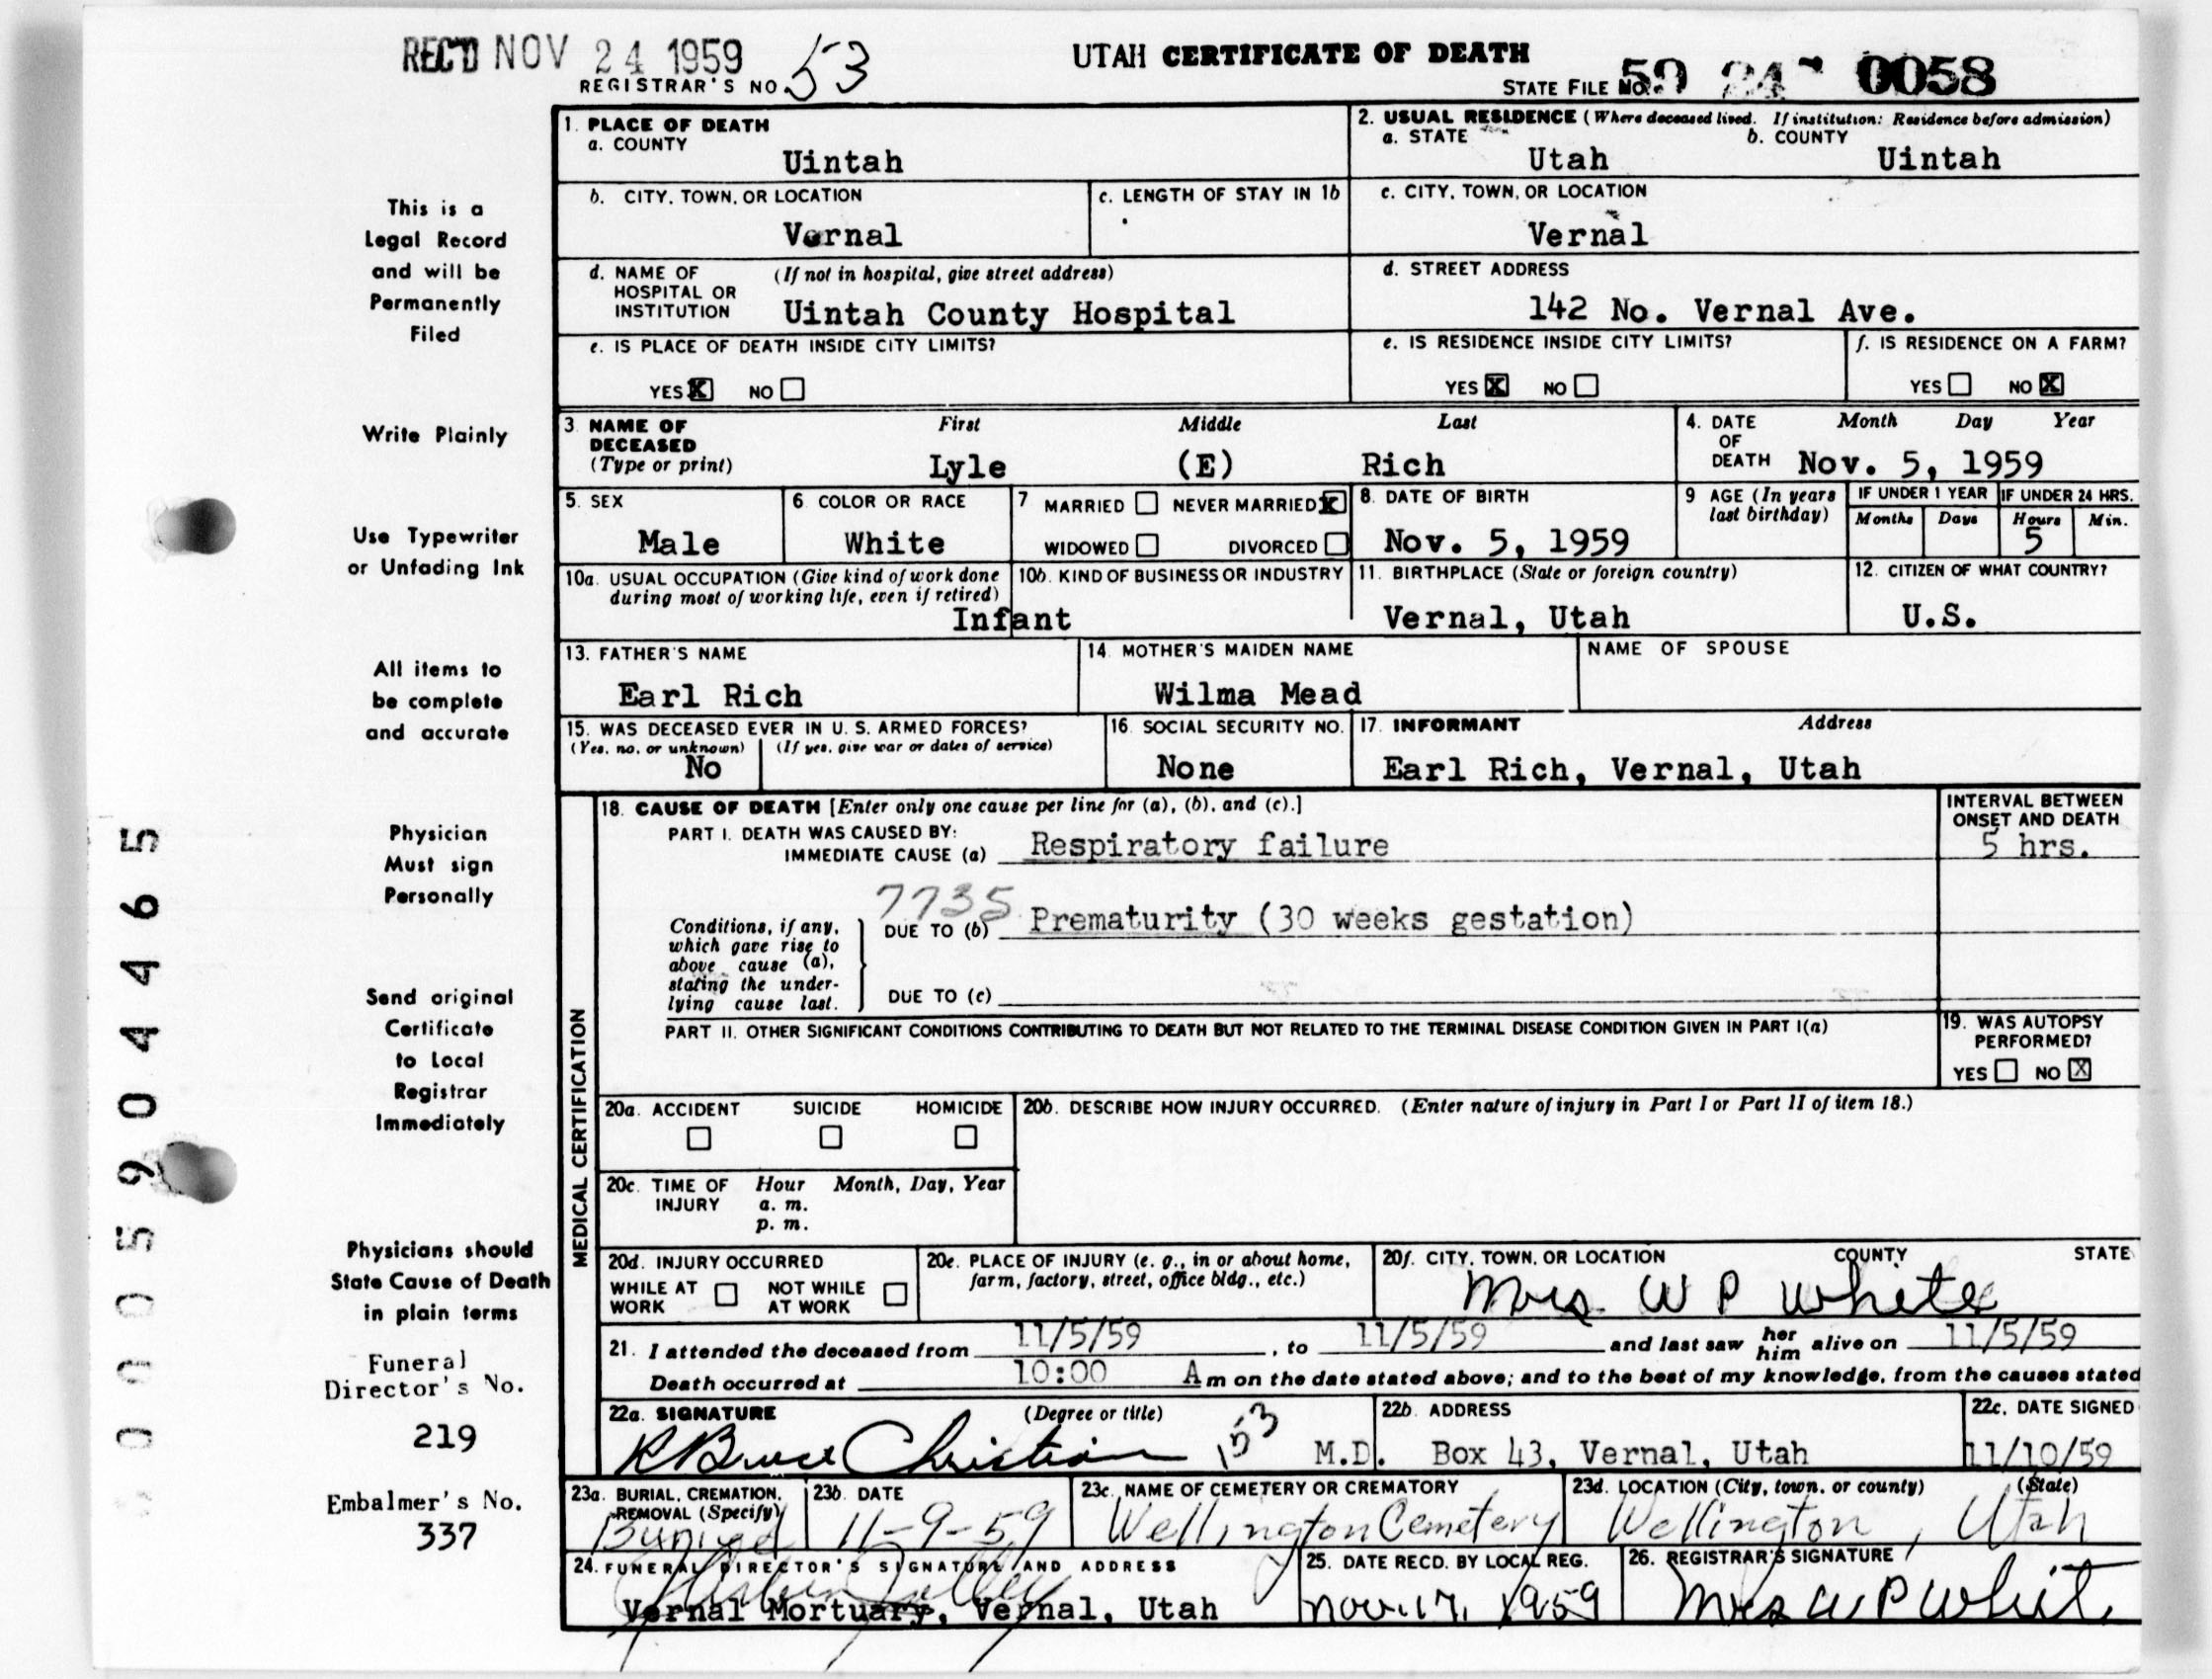 REC'D NOV 24 1959
REGISTRAR'S NO. 53
UTAH CERTIFICATE OF DEATH
STATE FILE NO. 59 24- 0058
This is a
Legal Record
and will be
Permanently
Filed
Write Plainly
Use Typewriter
or Unfading Ink
All items to
be complete
and accurate
Physician
Must sign
Personally
Send original
Certificate
to Local
Registrar
Immediately
Physicians should
State Cause of Death
in plain terms
Funeral
Director's No.
219
Embalmer's No.
337
0005904465
1. PLACE OF DEATH
a. COUNTY
Uintah
2. USUAL RESIDENCE (Where deceased lived. If institution: Residence before admission)
a. STATE b. COUNTY
Utah Uintah
b. CITY, TOWN, OR LOCATION
Vernal
c. LENGTH OF STAY IN 1b
c. CITY, TOWN, OR LOCATION
Vernal
d. NAME OF (If not in hospital, give street address)
HOSPITAL OR
INSTITUTION Uintah County Hospital
d. STREET ADDRESS
142 No. Vernal Ave.
e. IS PLACE OF DEATH INSIDE CITY LIMITS?
YES X NO
e. IS RESIDENCE INSIDE CITY LIMITS?
YES X NO
f. IS RESIDENCE ON A FARM?
YES NO X
3. NAME OF First Middle Last
DECEASED
(Type or print) Lyle (E) Rich
4. DATE Month Day Year
OF
DEATH Nov. 5, 1959
5. SEX
Male
6. COLOR OR RACE
White
7 MARRIED NEVER MARRIED X
WIDOWED DIVORCED
8. DATE OF BIRTH
Nov. 5, 1959
9 AGE (In years
last birthday)
IF UNDER 1 YEAR IF UNDER 24 HRS.
Months Days Hours Min.
5
10a. USUAL OCCUPATION (Give kind of work done
during most of working life, even if retired)
10b. KIND OF BUSINESS OR INDUSTRY
Infant
11. BIRTHPLACE (State or foreign country)
Vernal, Utah
12. CITIZEN OF WHAT COUNTRY?
U.S.
13. FATHER'S NAME
Earl Rich
14. MOTHER'S MAIDEN NAME
Wilma Mead
NAME OF SPOUSE
15. WAS DECEASED EVER IN U. S. ARMED FORCES?
(Yes, no, or unknown) (If yes, give war or dates of service)
No
16. SOCIAL SECURITY NO.
None
17. INFORMANT Address
Earl Rich, Vernal, Utah
MEDICAL CERTIFICATION
18. CAUSE OF DEATH [Enter only one cause per line for (a), (b), and (c).]
INTERVAL BETWEEN
ONSET AND DEATH
PART I. DEATH WAS CAUSED BY:
IMMEDIATE CAUSE (a) Respiratory failure 5 hrs.
7735
Conditions, if any,
which gave rise to
above cause (a),
stating the under-
lying cause last.
DUE TO (b) Prematurity (30 weeks gestation)
DUE TO (c)
PART II. OTHER SIGNIFICANT CONDITIONS CONTRIBUTING TO DEATH BUT NOT RELATED TO THE TERMINAL DISEASE CONDITION GIVEN IN PART I(a)
19. WAS AUTOPSY
PERFORMED?
YES NO X
20a. ACCIDENT SUICIDE HOMICIDE
20b. DESCRIBE HOW INJURY OCCURRED. (Enter nature of injury in Part I or Part II of item 18.)
20c. TIME OF Hour Month, Day, Year
INJURY a. m.
p. m.
20d. INJURY OCCURRED
WHILE AT NOT WHILE
WORK AT WORK
20e. PLACE OF INJURY (e. g., in or about home,
farm, factory, street, office bldg., etc.)
20f. CITY, TOWN, OR LOCATION COUNTY STATE
Mrs. W P White
21. I attended the deceased from 11/5/59, to 11/5/59 and last saw her him alive on 11/5/59
Death occurred at 10:00 A m on the date stated above; and to the best of my knowledge, from the causes stated
22a. SIGNATURE (Degree or title)
R Bruce Christian 153 M.D.
22b. ADDRESS
Box 43, Vernal, Utah
22c. DATE SIGNED
11/10/59
23a. BURIAL, CREMATION,
REMOVAL (Specify)
Buried
23b. DATE
11-9-59
23c. NAME OF CEMETERY OR CREMATORY
Wellington Cemetery
23d. LOCATION (City, town, or county) (State)
Wellington, Utah
24. FUNERAL DIRECTOR'S SIGNATURE AND ADDRESS
Vernal Mortuary, Vernal, Utah
25. DATE RECD. BY LOCAL REG.
Nov. 17, 1959
26. REGISTRAR'S SIGNATURE
Mrs W P Whit